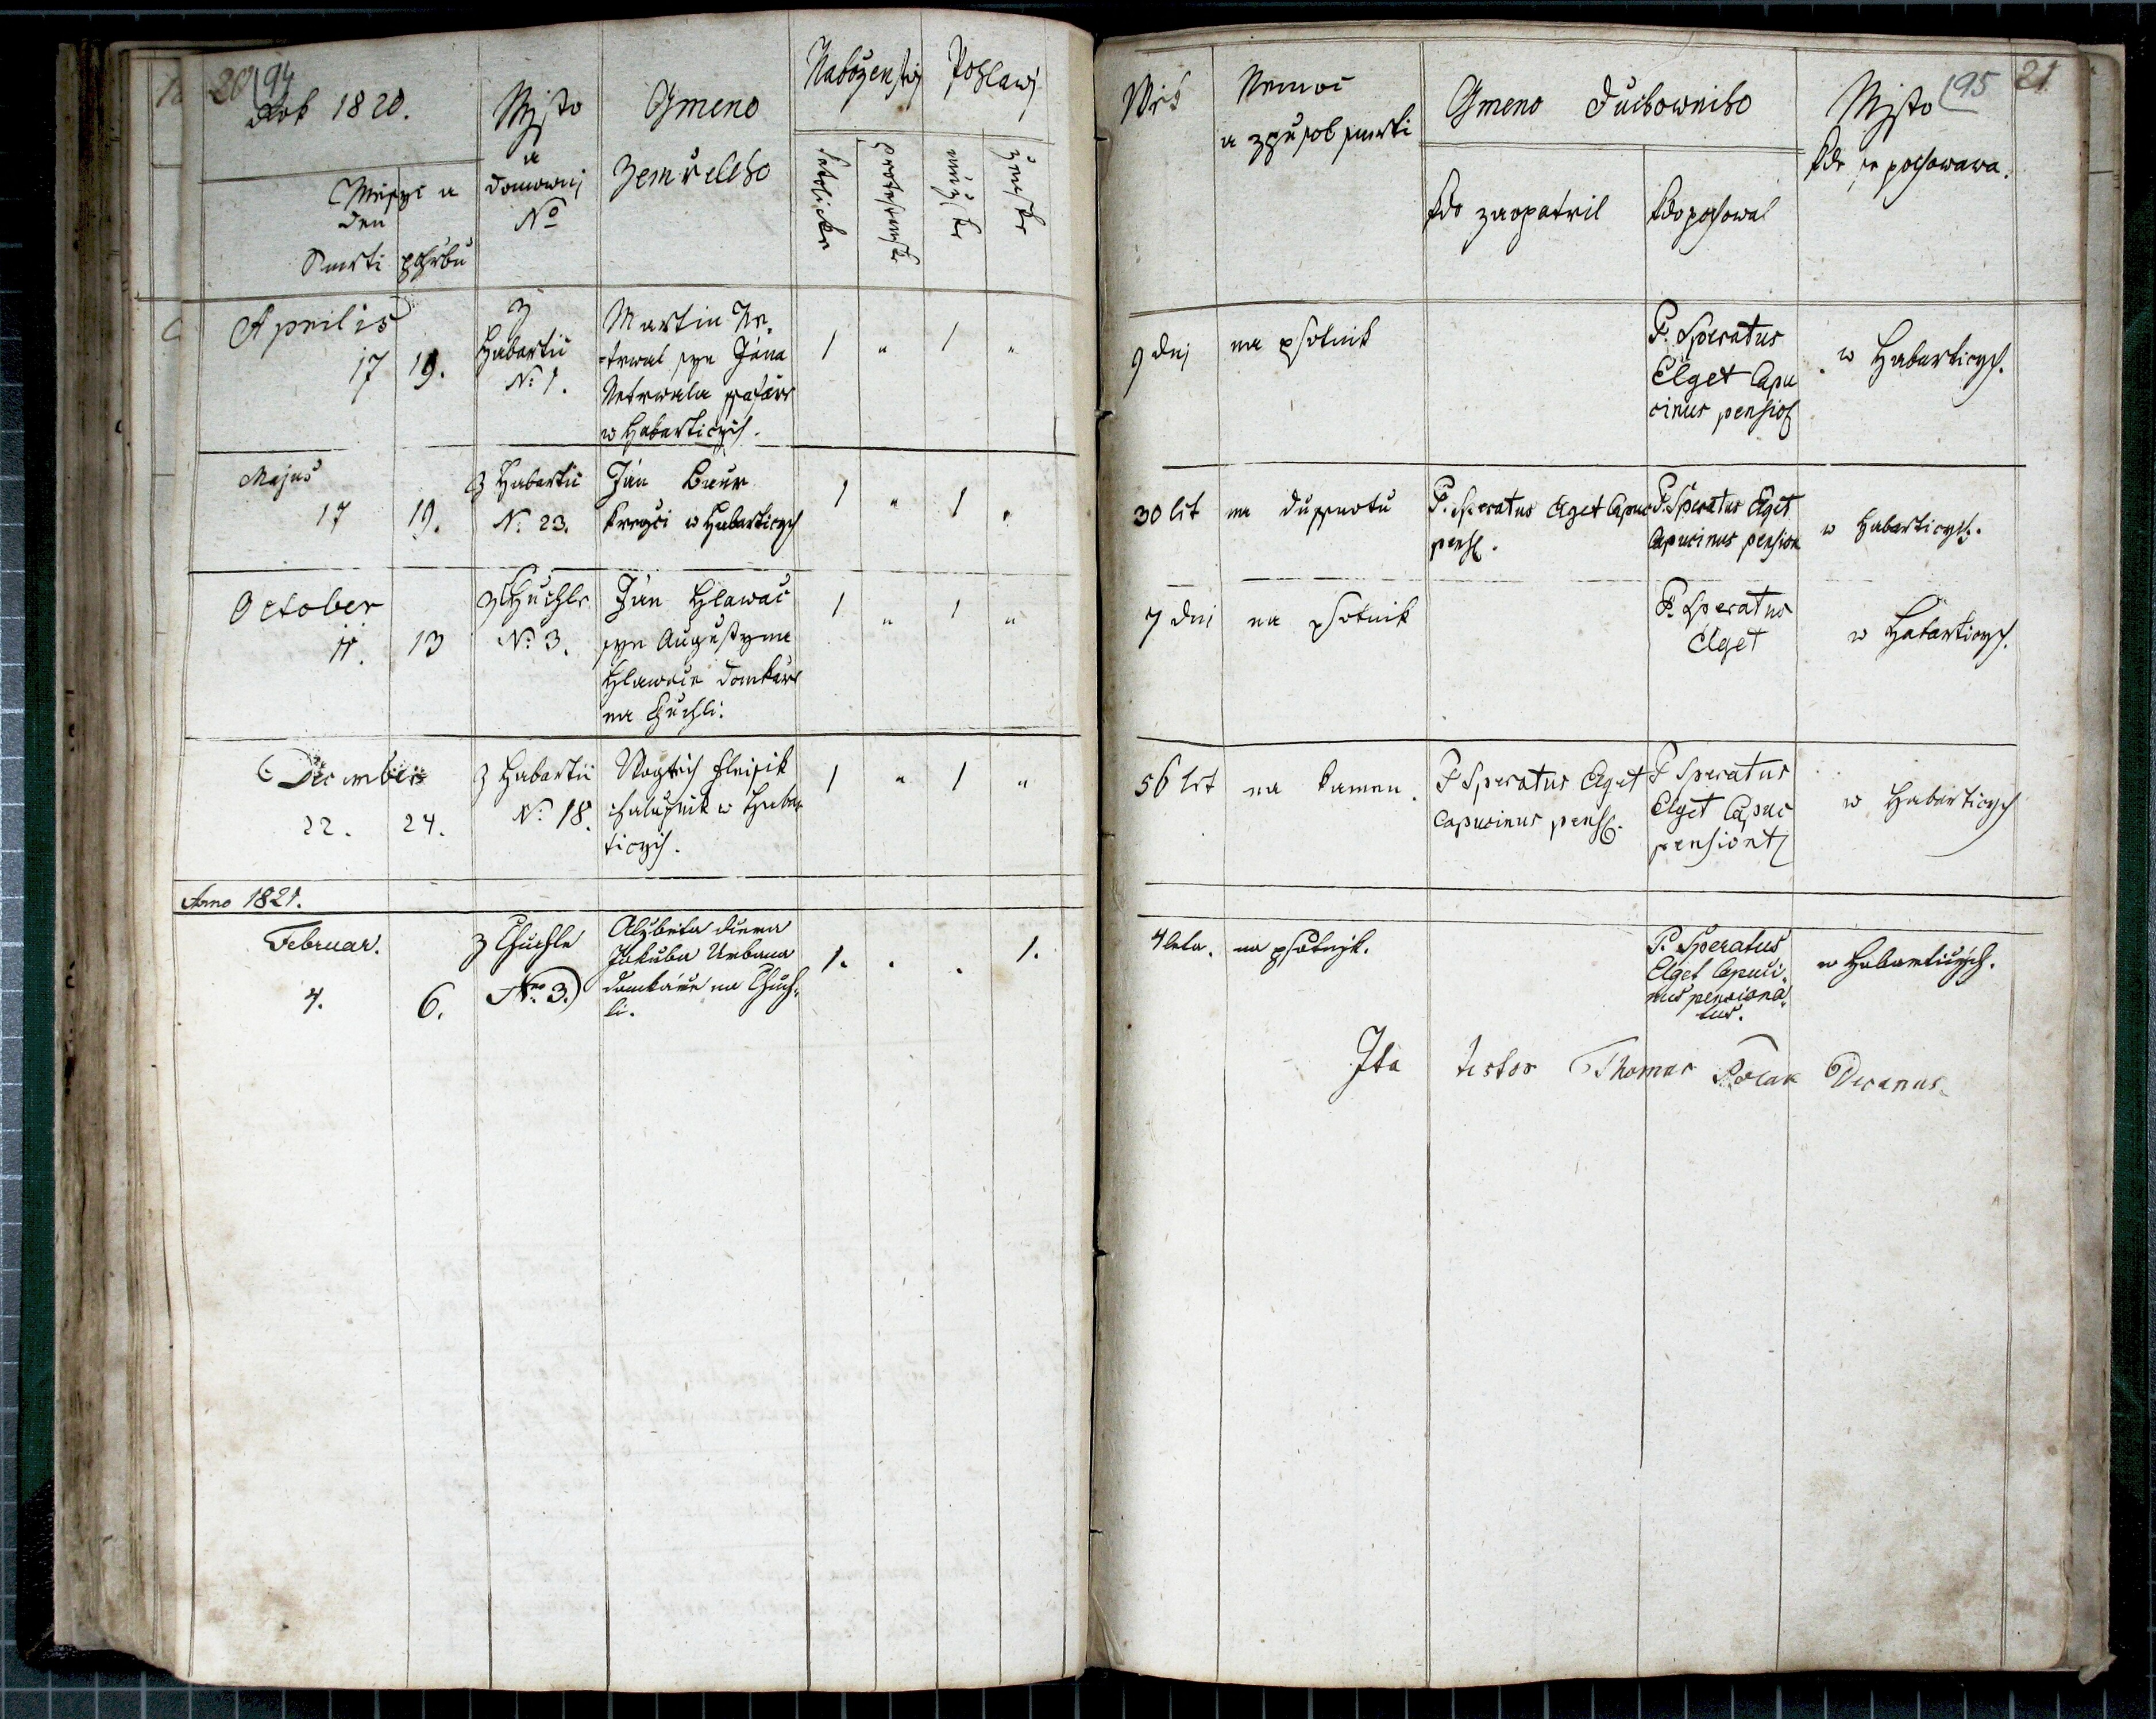 20 94
Rok 1820.
Mjsto
a
domownj
No
Gmeno
Zemřelého
Nabozenstwj
Pohlawj
Mesyc a
den
Smrti pohrbu
katolicke
protestantske
mužske
ženske
Aprilis
17 19.
z
Habartic
N: 1.
Martin Ne-
-trwal syn Jána
Netrwala
w Habarticych.
1 " 1 "
Majus
17 19.
z Habartic
N: 23.
Ján Baur
kregči w Habarticych
1 " 1 "
October
11. 13
z Chuchle
N: 3.
Ján Hlawač
syn Augustyna
Hlawače domkáře
na Chuchli.
1 " 1 "
December
22. 24.
z Habartic
N: 18.
Wogtěch
chalupnik w Habar
ticych.
1 " 1 "
Anno 1821.
Februar.
4. 6.
z Chuchle
Nro 3.)
Alzběta dcera
Jakuba Urbana
domkáře na Chuch-
li.
1. . . 1.
95 21
Wěk
Nemoc
a zpusob smrti
Gmeno Duchowniho
kdo zaopatril
kdo pochowal
Mjsto
kde se pochowawa.
9 dnj na psotnik
P. Speratus
Elget Capu
cinus pension
w Habarticych.
30 lét na
P. Speratus Elget Capuc
pens.
P. Speratus Elget
Capucinus pension
w Habarticych.
7 dnj na psotnik
P. Speratus
Elget
w Habarticych.
56 lét na kamen.
P Speratus Elget
Capucinus pens.
P Speratus
Elget Capuc
pensionat
w Habarticych
4 leta. na psotnjk.
P. Speratus
Elget Capuci-
nus pensiona-
tus.
w Habarticých.
Ita testor Thomas Polak Decanus